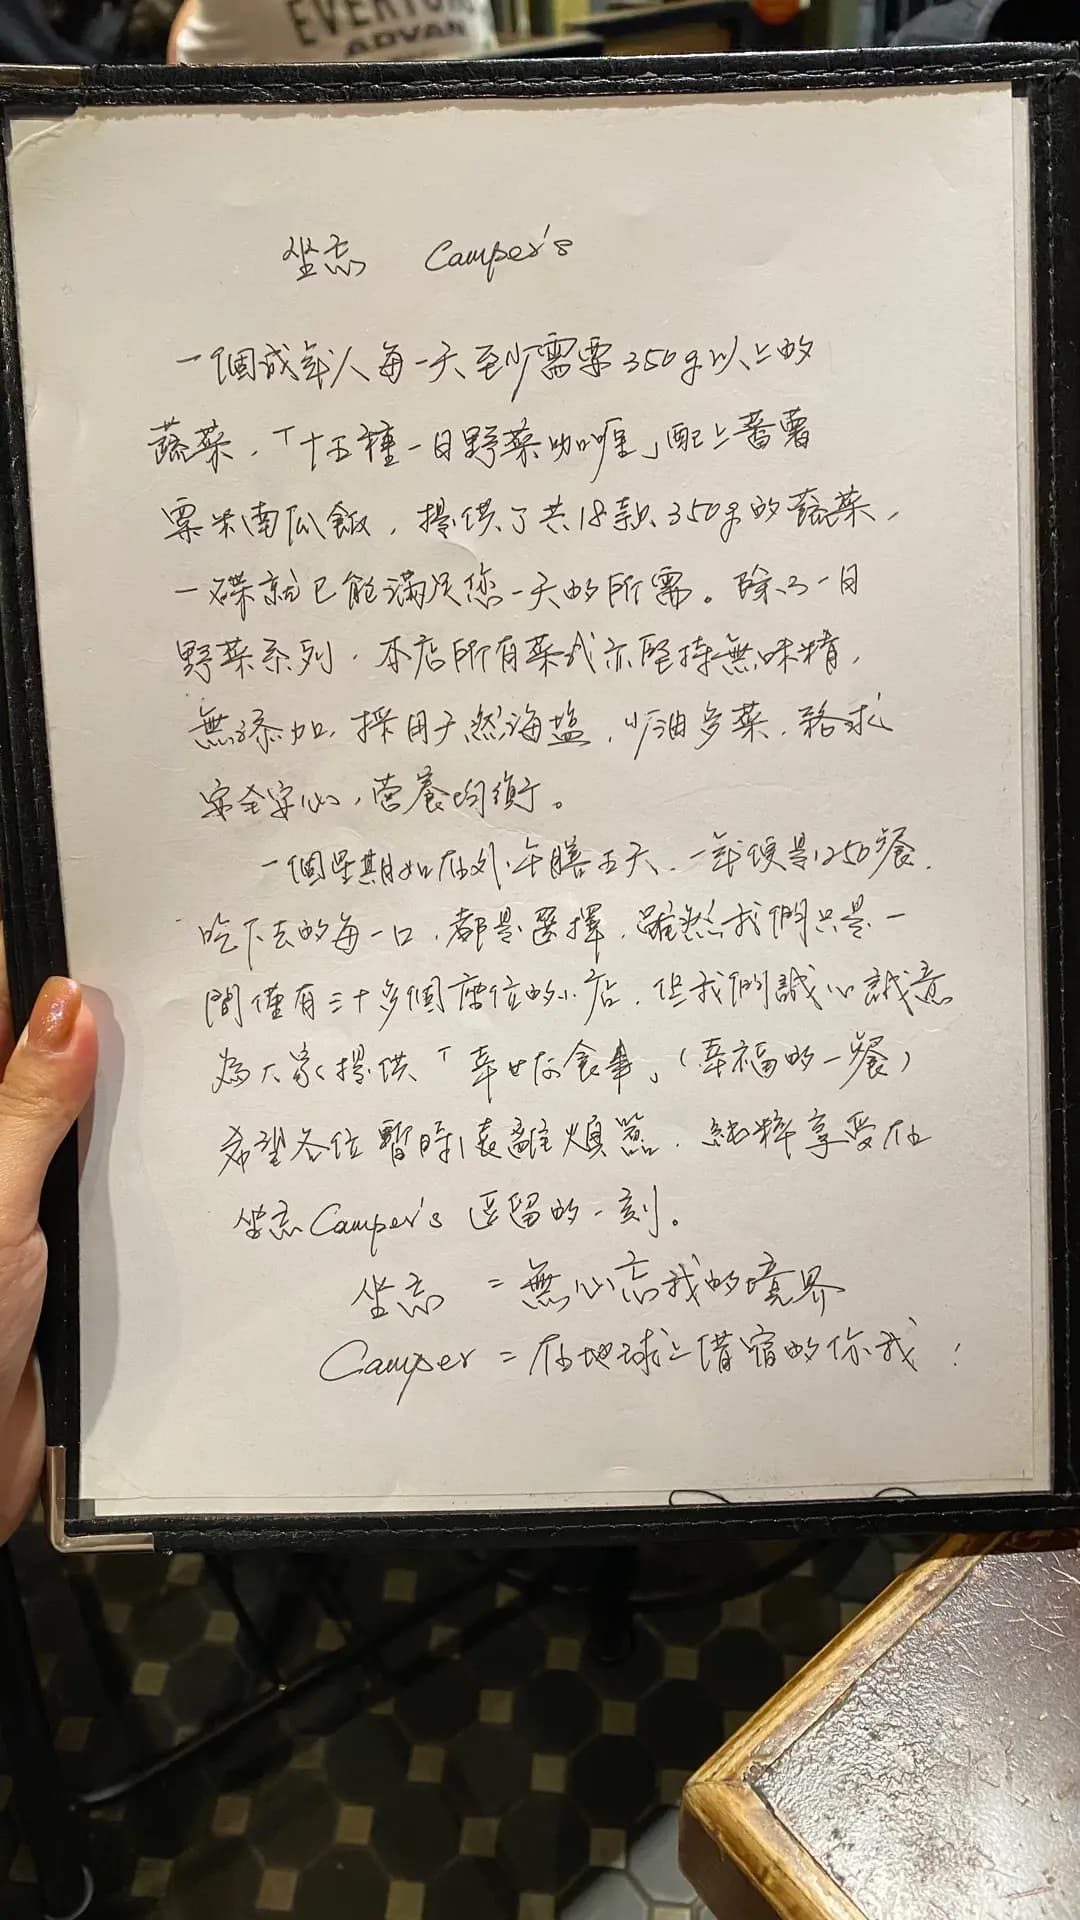 EVERYONE
ADVAN
坐忘 Camper's
一個成年人每一天至少需要350g以上的
蔬菜,「十五種一日野菜咖喱」配上蕃薯
粟米南瓜飯,提供了共18款350g的蔬菜,
一碟就已能滿足您一天的所需。除了一日
野菜系列,本店所有菜式亦堅持無味精,
無添加,採用天然海盐,少油多菜,務求
安全安心,营養均衡。
一個星期如在外午膳五天,一年便是250餐,
吃下去的每一口,都是選擇,雖然我們只是一
間僅有三十多個座位的小店,但我們誠心誠意
為大家提供「幸せな食事」(幸福的一餐)
希望各位暫時遠離煩囂,純粹享受在
坐忘Camper's 逗留的一刻。
坐忘 = 無心忘我的境界
Camper = 在地球上借宿的你我!